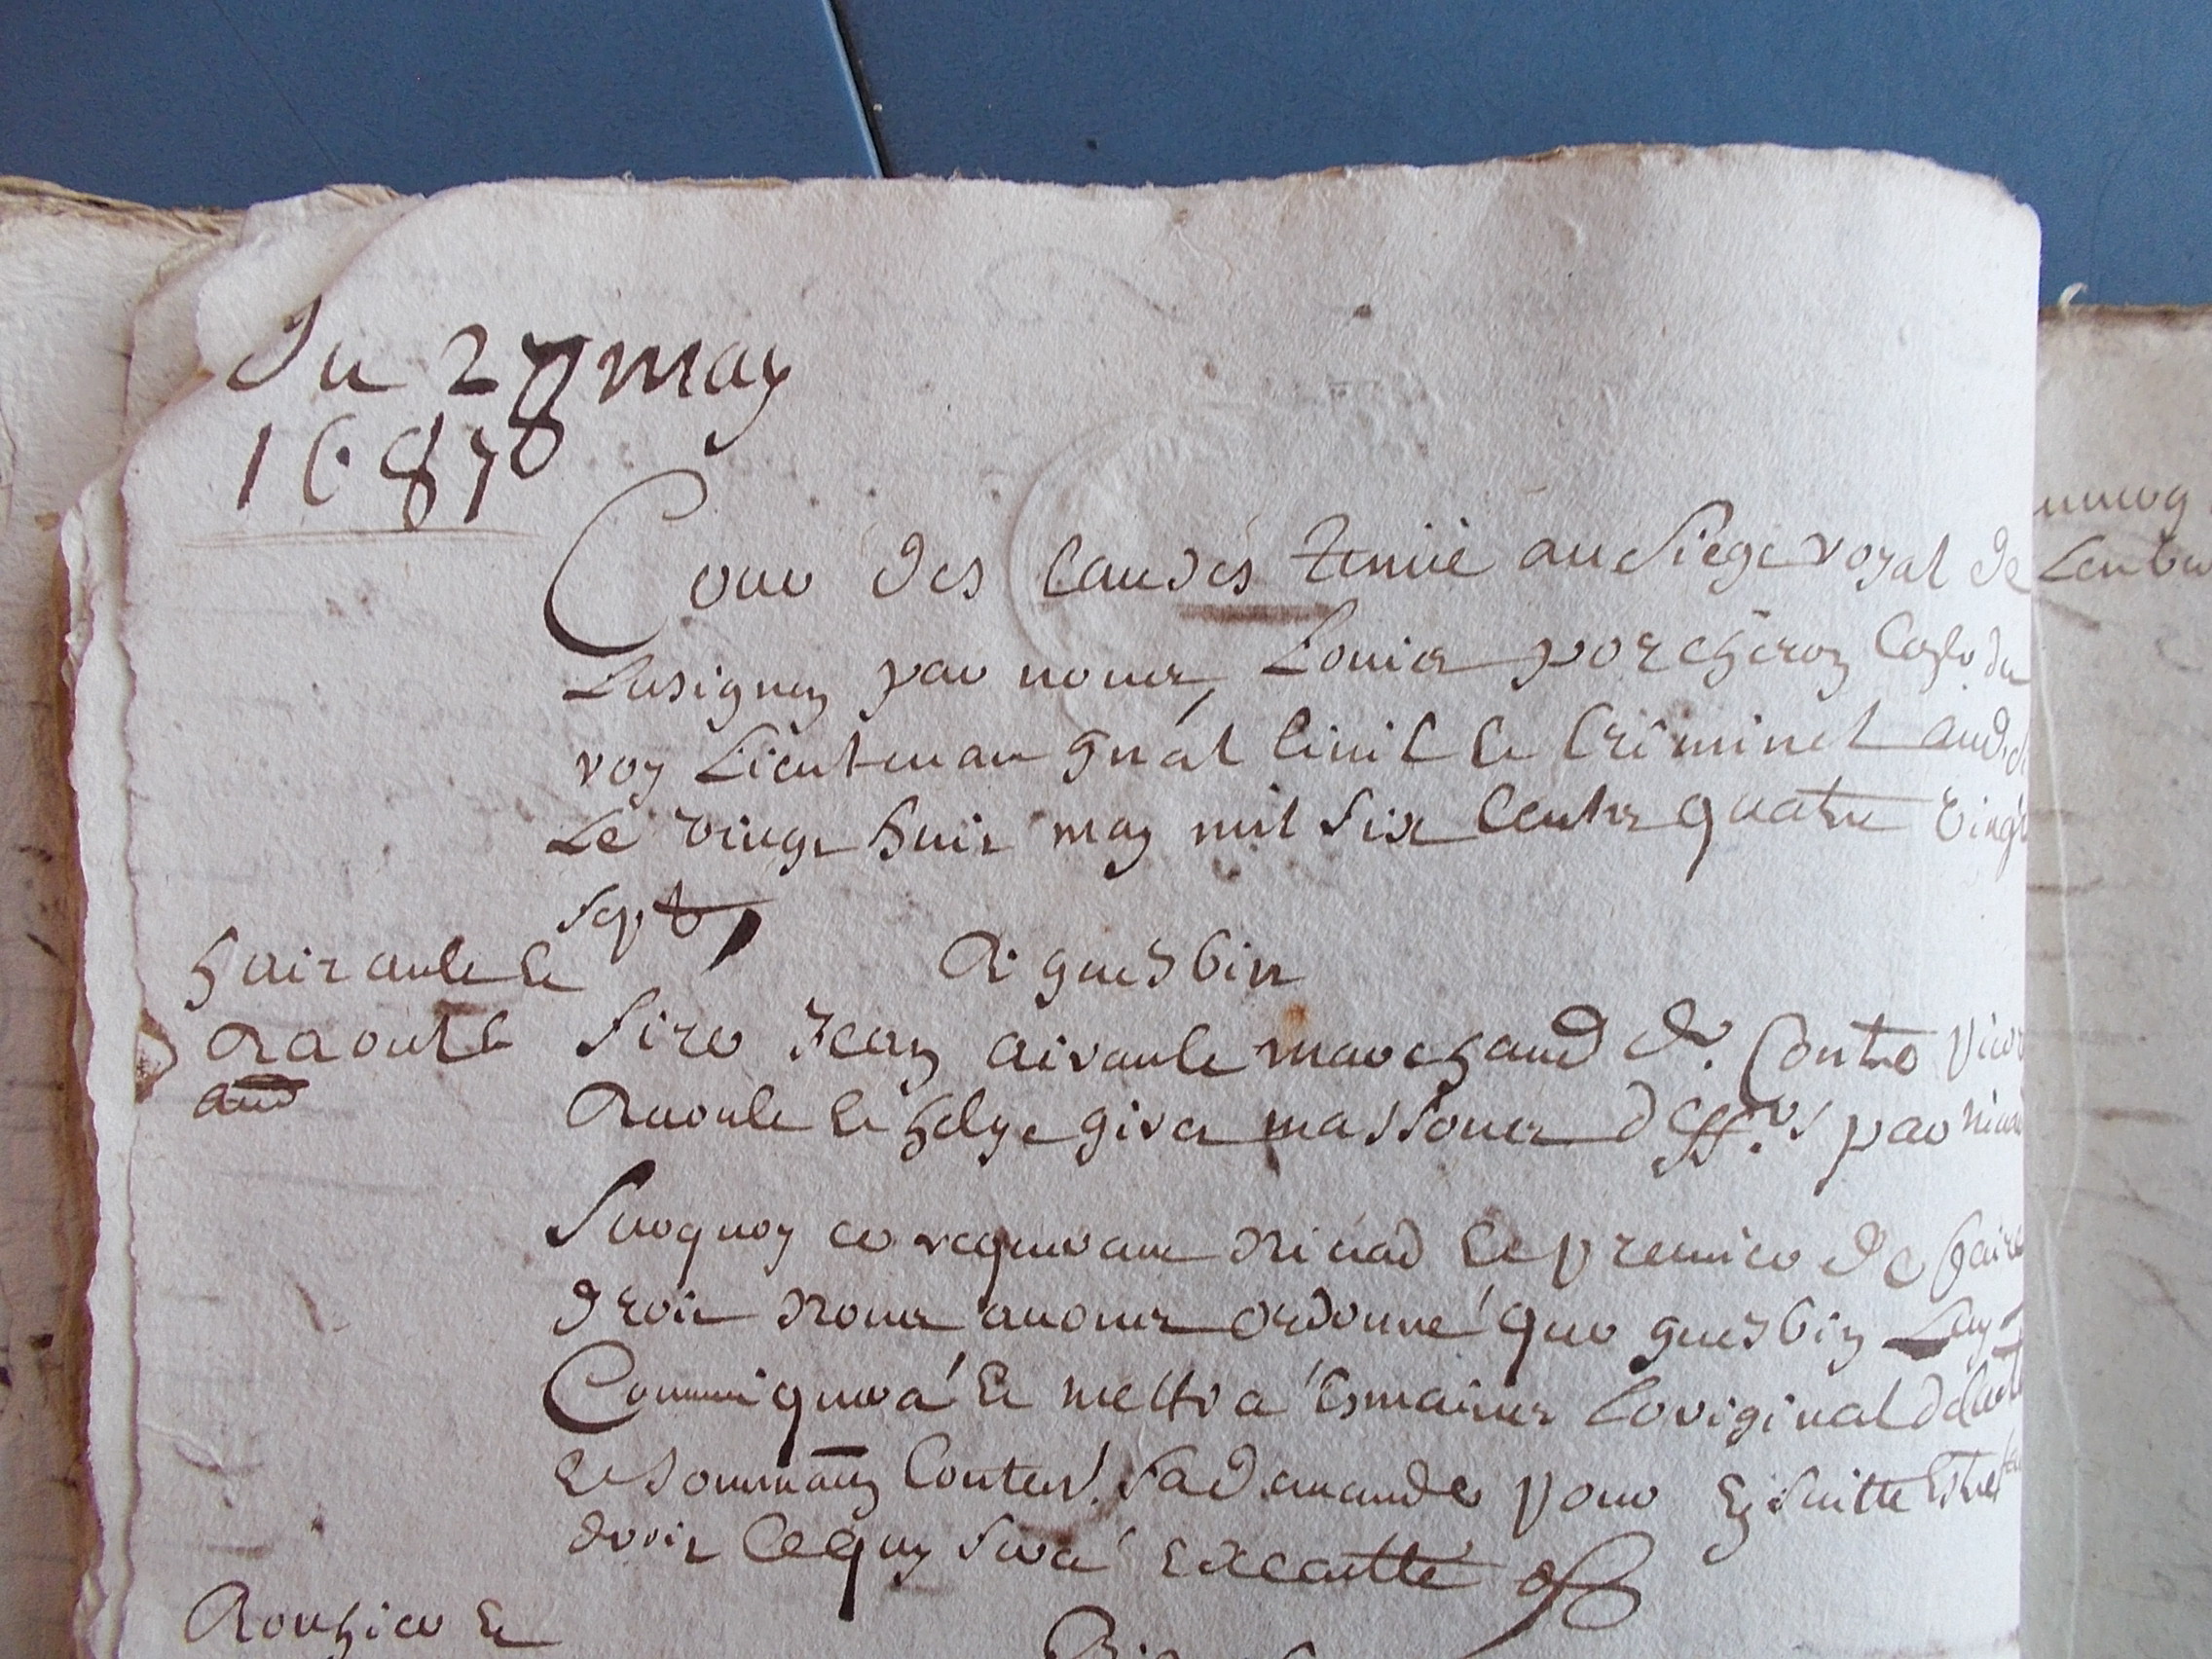 Du 28 may
1687
Cour des caudes tenüe au siege royal de
Lusignen par nous, Louis porcheron Coner du
roy Lieutenant gnãl Civil et Criminel aud.
Le vingt huit may mil six Cents quatre vingt
sept,
hairault et
Raoult
aud
A guesbin
Sire Jean airault marchand dr. Contre
Raoult et helye giros massons deffrs par
Surquoy ce requerant Nicad et premier de faire
droit Nous auons ordonné que guesbin
Communiquera et mettra es mains Loriginal
et sommaon Conten. sa demande pour en suitte estre
droit Ce quy sera exeautté
Rouhier et